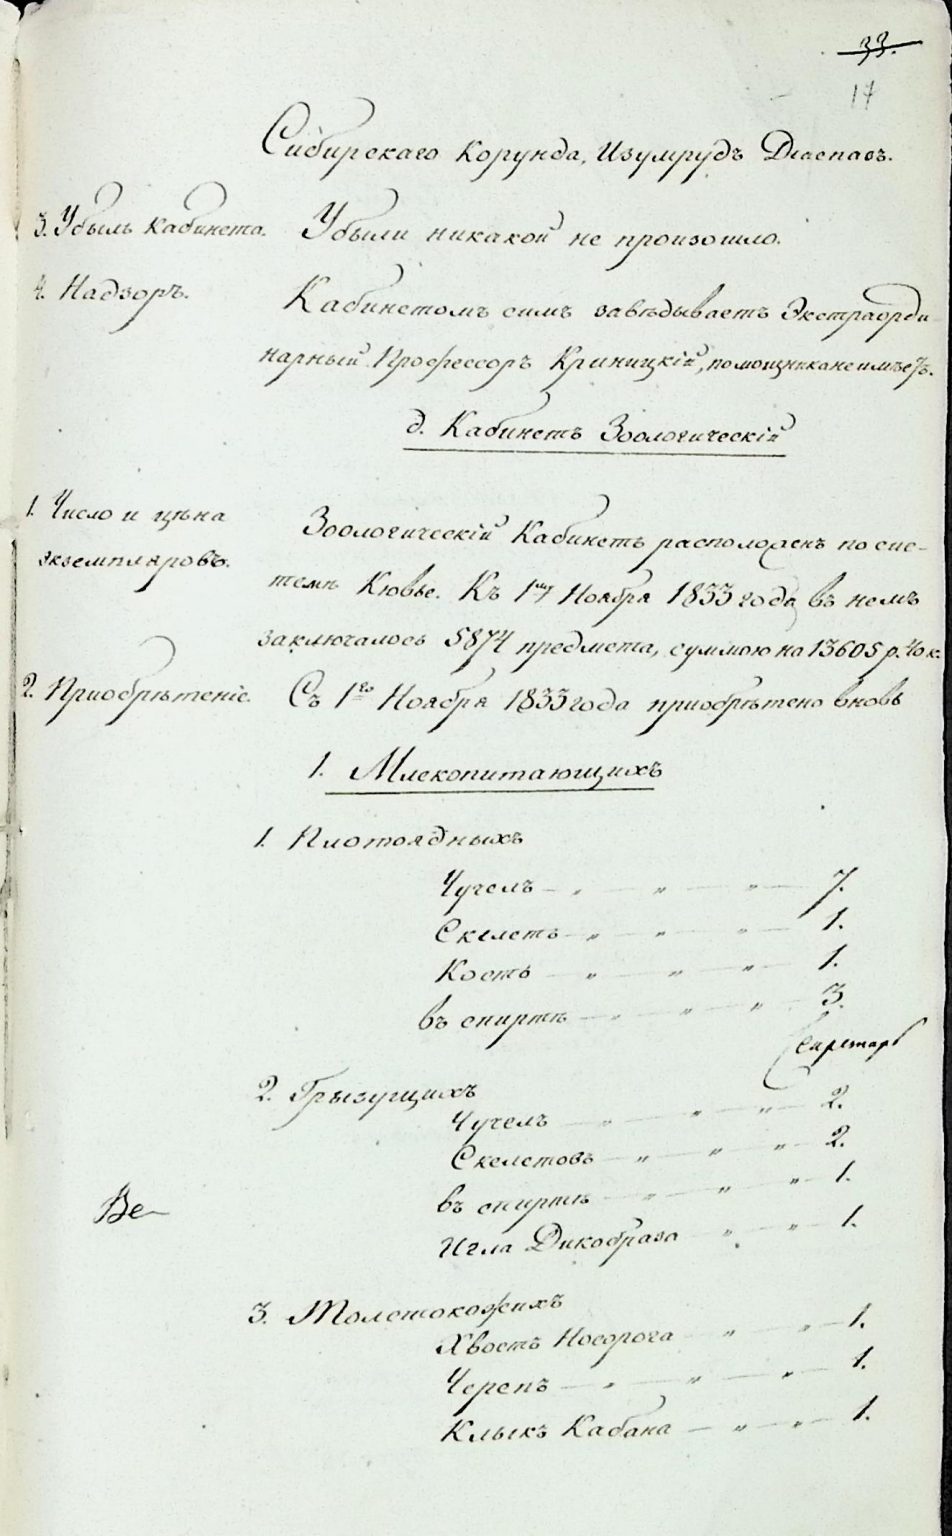 33.
17
Сибирскаго Корунда, Изумрудъ Діаспазъ.
3. Убыль Кабинета. Убыли никакой не произошло.
4. Надзоръ. Кабинетомъ симъ завѣдываетъ Экстраорди-
нарный Профессоръ Криницкій, помощника не имѣетъ.
д. Кабинетъ Зоологическій
1. Число и цѣна
экземпляровъ.
Зоологическій Кабинетъ расположенъ по сис-
темѣ Кювье. Къ 1му Ноября 1833 года въ немъ
заключалось 5874 предмета, суммою на 13605 р. 40 к.
2. Пріобрѣтеніе. Съ 1го Ноября 1833 года пріобрѣтено вновь
1. Млекопитающихъ
1. Плотоядныхъ
Чучелъ — „ — „ — „ — 7.
Скелетъ — „ — „ — „ — 1.
Кость — „ — „ — „ — 1.
въ спиртѣ — „ — „ — „ — 3.
Секретарь
2. Грызущихъ
Чучелъ — „ — „ — „ — 2.
Скелетовъ — „ — „ — „ — 2.
въ спиртѣ — „ — „ — „ — 1.
Игла Дикобраза — „ — „ — 1.
Ве
3. Толстокожихъ
Хвостъ Носорога — „ — „ — 1.
Черепъ — „ — „ — „ — 1.
Клыкъ Кабана — „ — „ — 1.